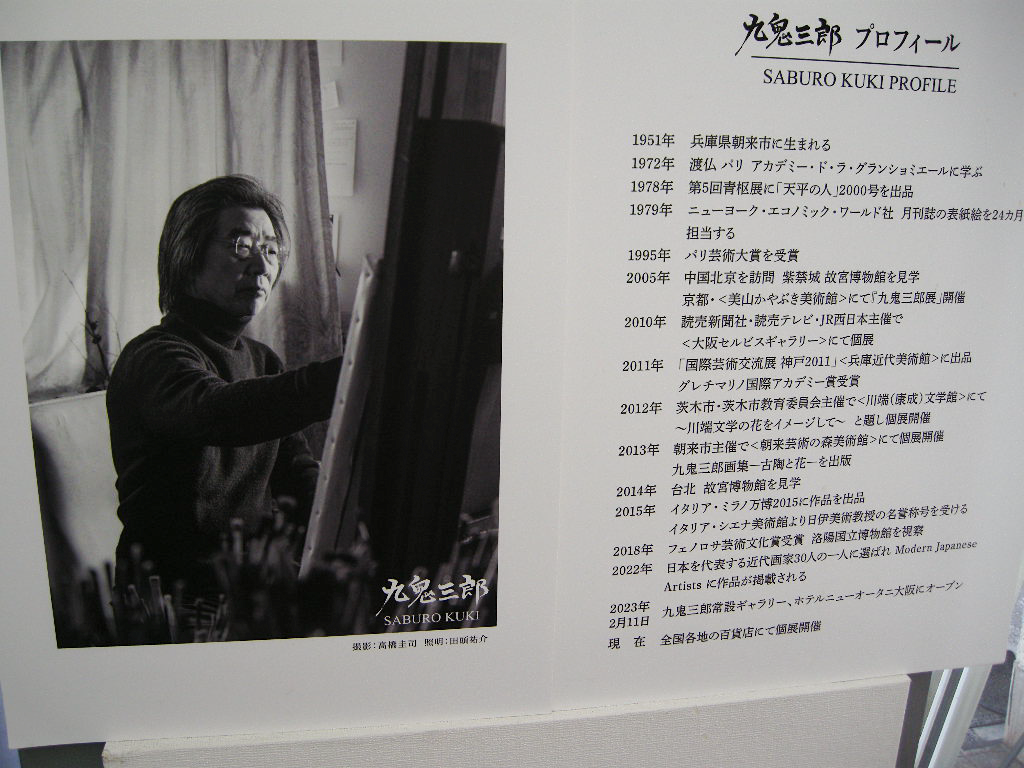 九鬼三郎 プロフィール
SABURO KUKI PROFILE
1951年 兵庫県朝来市に生まれる
1972年 渡仏 パリ アカデミー・ド・ラ・グランショミエールに学ぶ
1978年 第5回青枢展に「天平の人」2000号を出品
1979年 ニューヨーク・エコノミック・ワールド社 月刊誌の表紙絵を24カ月
担当する
1995年 パリ芸術大賞を受賞
2005年 中国北京を訪問 紫禁城 故宮博物館を見学
京都・<美山かやぶき美術館>にて『九鬼三郎展』開催
2010年 読売新聞社・読売テレビ・JR西日本主催で
<大阪セルビスギャラリー>にて個展
2011年 「国際芸術交流展 神戸2011」<兵庫近代美術館>に出品
グレチマリノ国際アカデミー賞受賞
2012年 茨木市・茨木市教育委員会主催で<川端(康成)文学館>にて
～川端文学の花をイメージして～ と題し個展開催
2013年 朝来市主催で<朝来芸術の森美術館>にて個展開催
九鬼三郎画集ー古陶と花ーを出版
2014年 台北 故宮博物館を見学
2015年 イタリア・ミラノ万博2015に作品を出品
イタリア・シエナ美術館より日伊美術教授の名誉称号を受ける
2018年 フェノロサ芸術文化賞受賞 洛陽国立博物館を視察
2022年 日本を代表する近代画家30人の一人に選ばれ Modern Japanese
Artists に作品が掲載される
2023年
2月11日 九鬼三郎常設ギャラリー、ホテルニューオータニ大阪にオープン
現 在 全国各地の百貨店にて個展開催
九鬼三郎
SABURO KUKI
撮影:高橋圭司 照明:田頭祐介